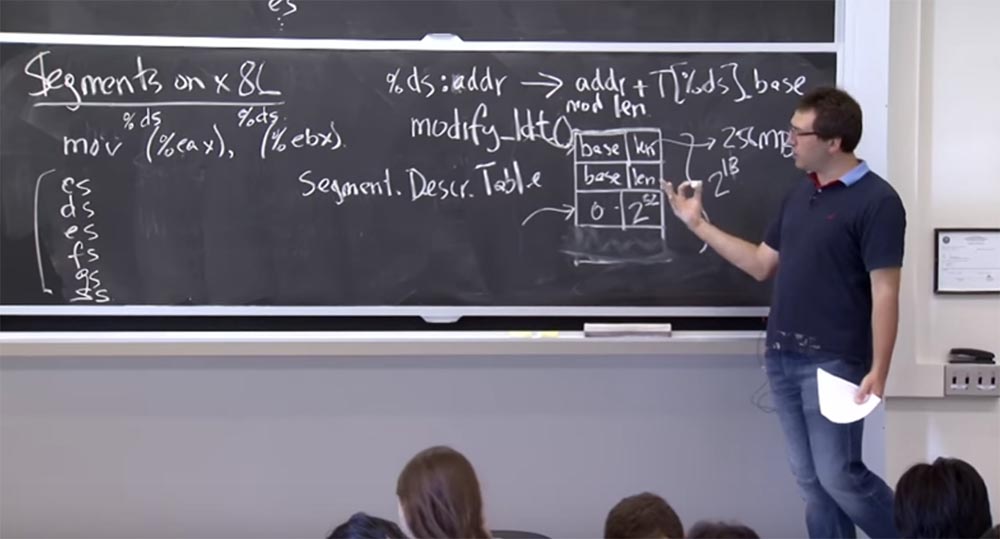 es
Segments on x86
%ds %ds
mov (%eax), (%ebx).
cs
ds
es
fs
gs
ss
%ds:addr → addr + T[%ds].base
mod len
modify_ldt()
Segment. Descr. Table
base len
base len
0 2^32
→ 256MB
2^13